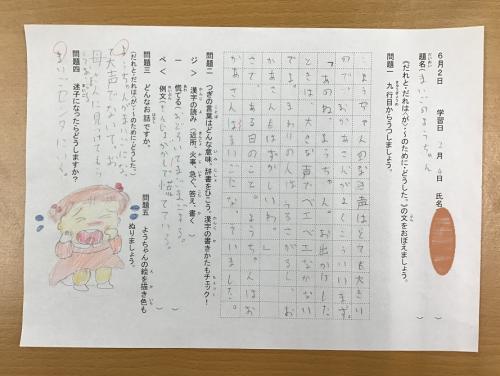 6月2日　学習日　2月4日　氏名（　）
題名（まいごのようちゃん　）
問題一　九行目からうつしましょう。
《だれと・だれは・が・〜のために・どうした。》の文をおぼえましょう。
ようちゃんのなき声はとても大きい
ので、おかあさんがよくこういいます。
「あのね、ようちゃん。お出かけした
ときは、大きな声でベエベエなかない
でよ。まわりの人はうるさがるし、お
かあさんもはずかしいわ。」
さて、ある日のこと、ようちゃんはお
かあさんと
ていました。
問題二　つぎの言葉はどんな意味。辞書をひこう。漢字の書きかたもチェック！
ジ＞　漢字の読み（近所、火事、急ぐ、答え、書く
一　慌てる（おどろいてまごまごする。　）
ペ＜　例文（
問題三　どんなお話ですか。
《だれと・だれは・が・〜のために・どうした。》
ようちゃんがまいごになっ
て大声でないて、お
母さんに見つけてもらう
お話
問題四　迷子になったらどうしますか？
まいごセンターにいく。
問題五　ようちゃんの絵を描き色も
ぬりましょう。